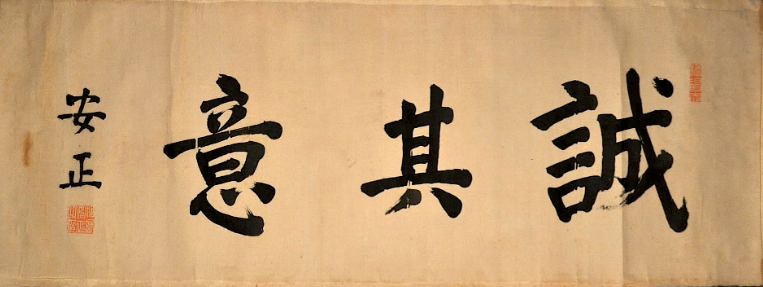 誠其意
安正